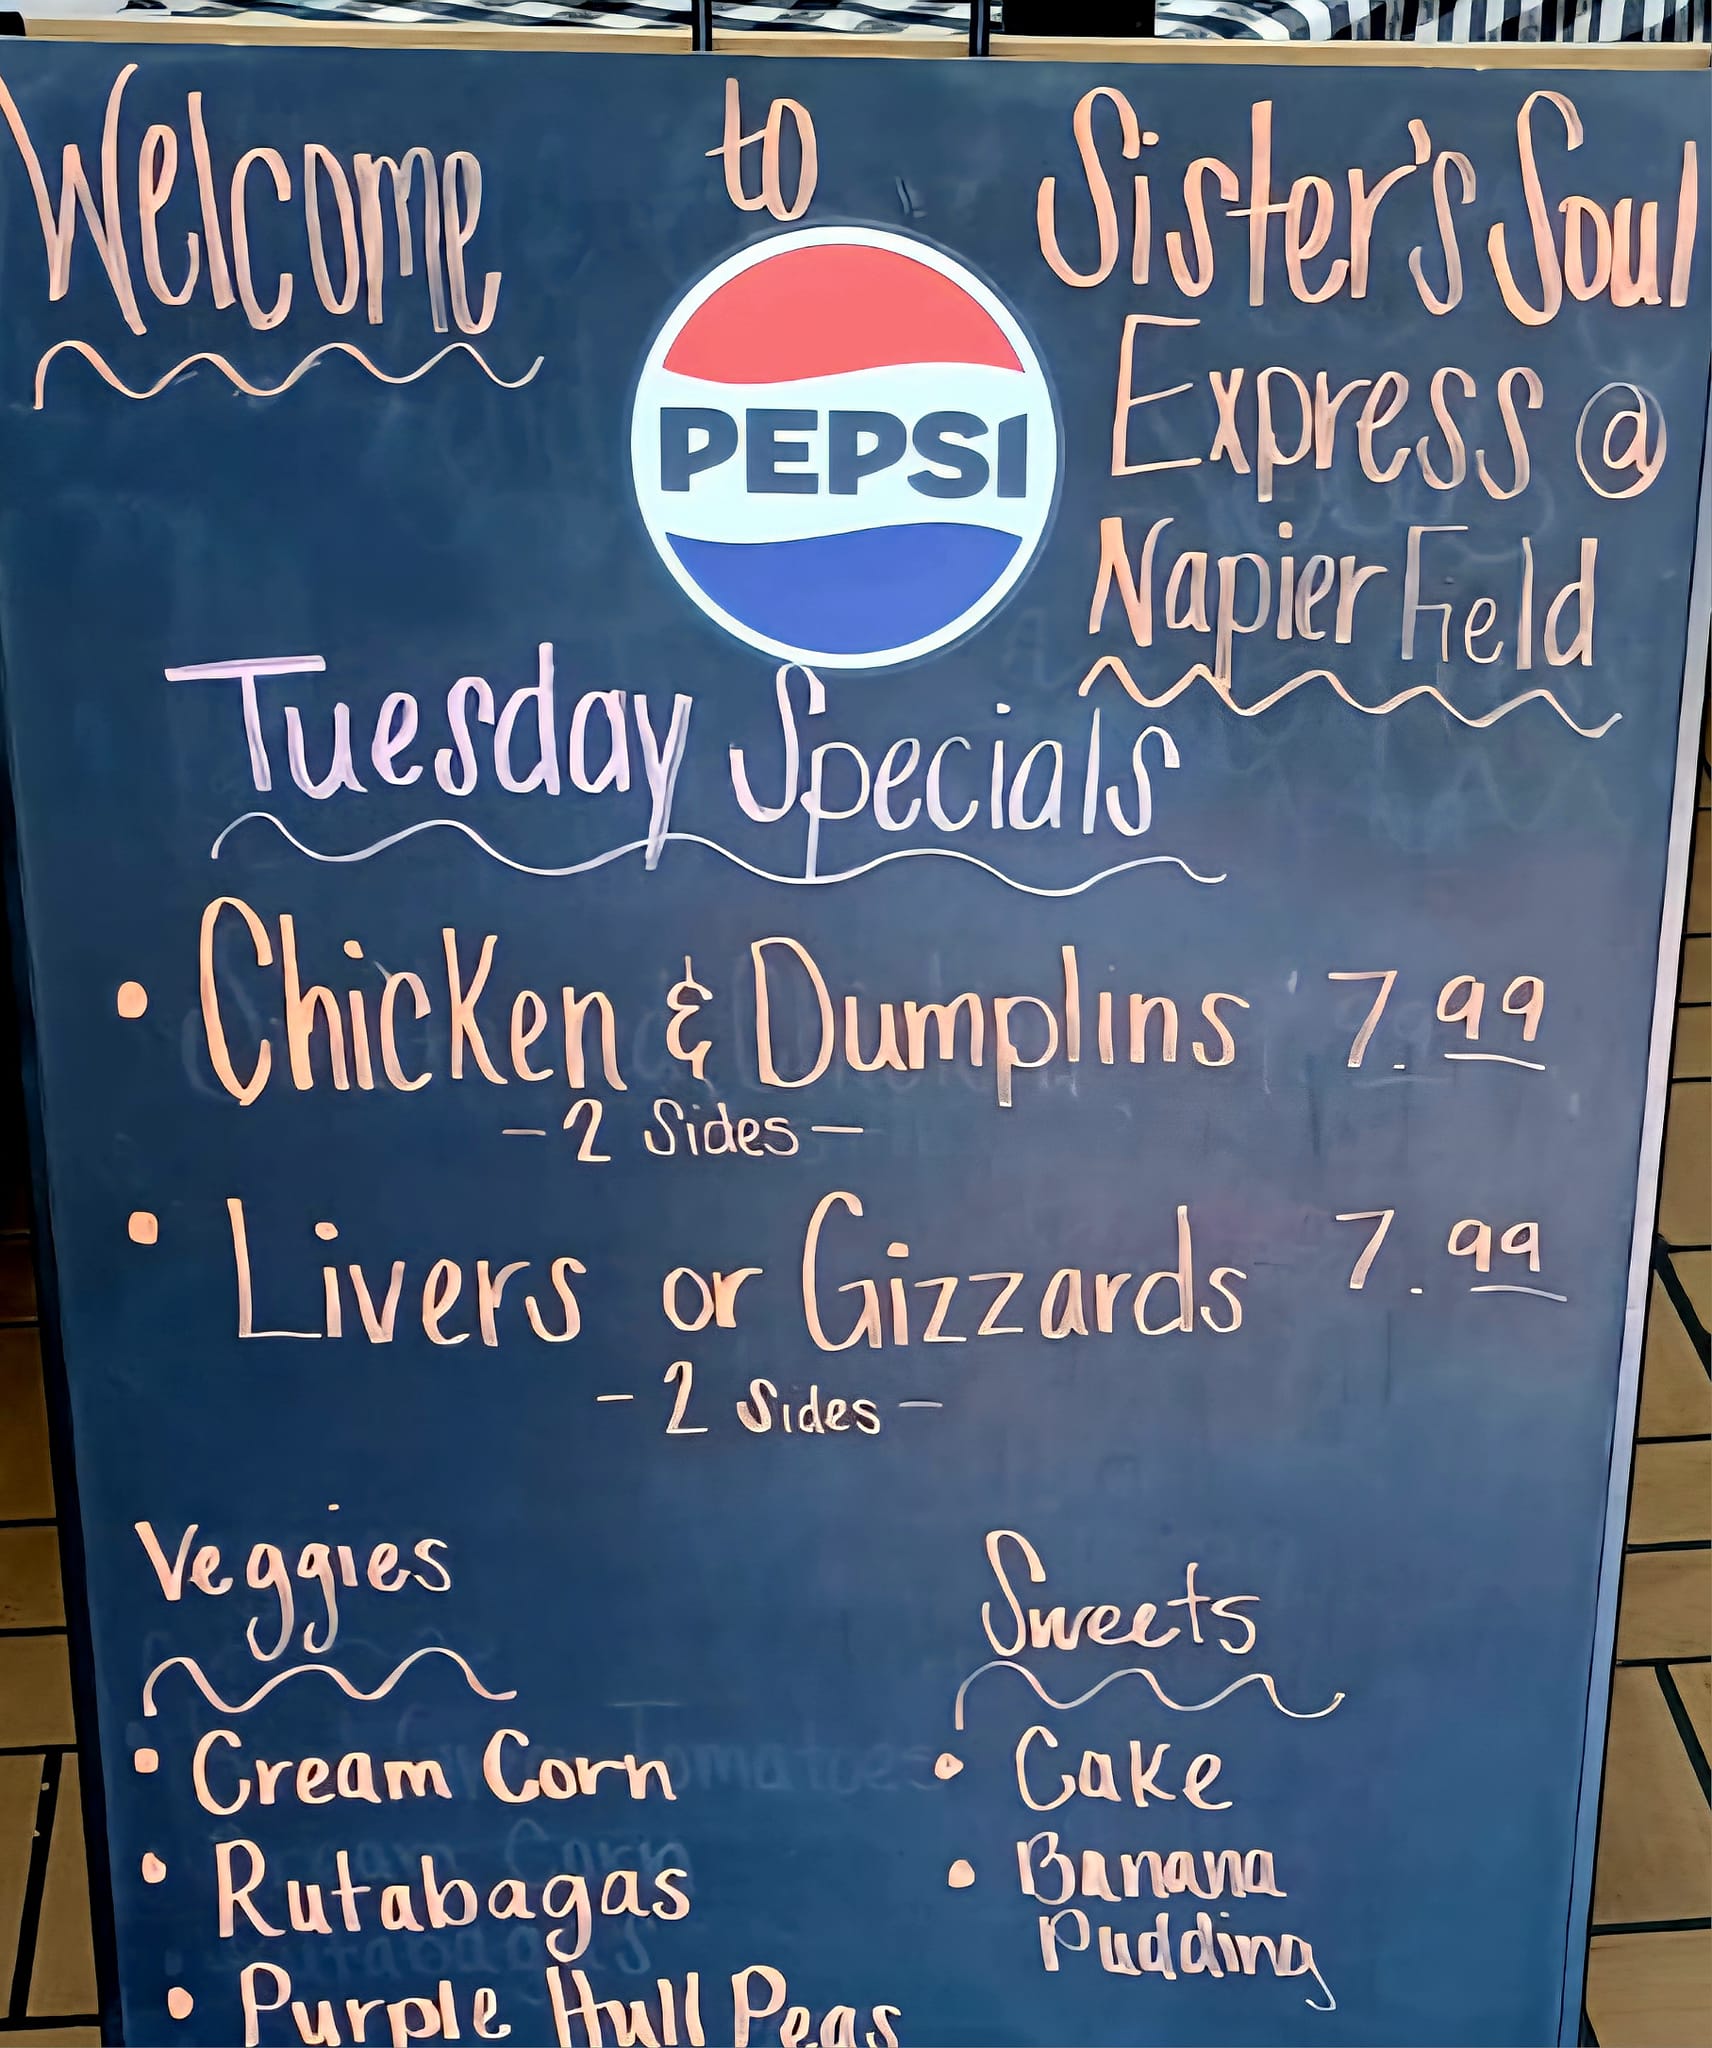 Welcome to Sister's Soul
Express @
PEPSI
Napier Field
Tuesday Specials
• Chicken & Dumplins 7.99
- 2 Sides -
• Livers or Gizzards 7.99
- 2 Sides -
Veggies
• Cream Corn
• Rutabagas
• Purple Hull Peas
Sweets
• Cake
• Banana
Pudding